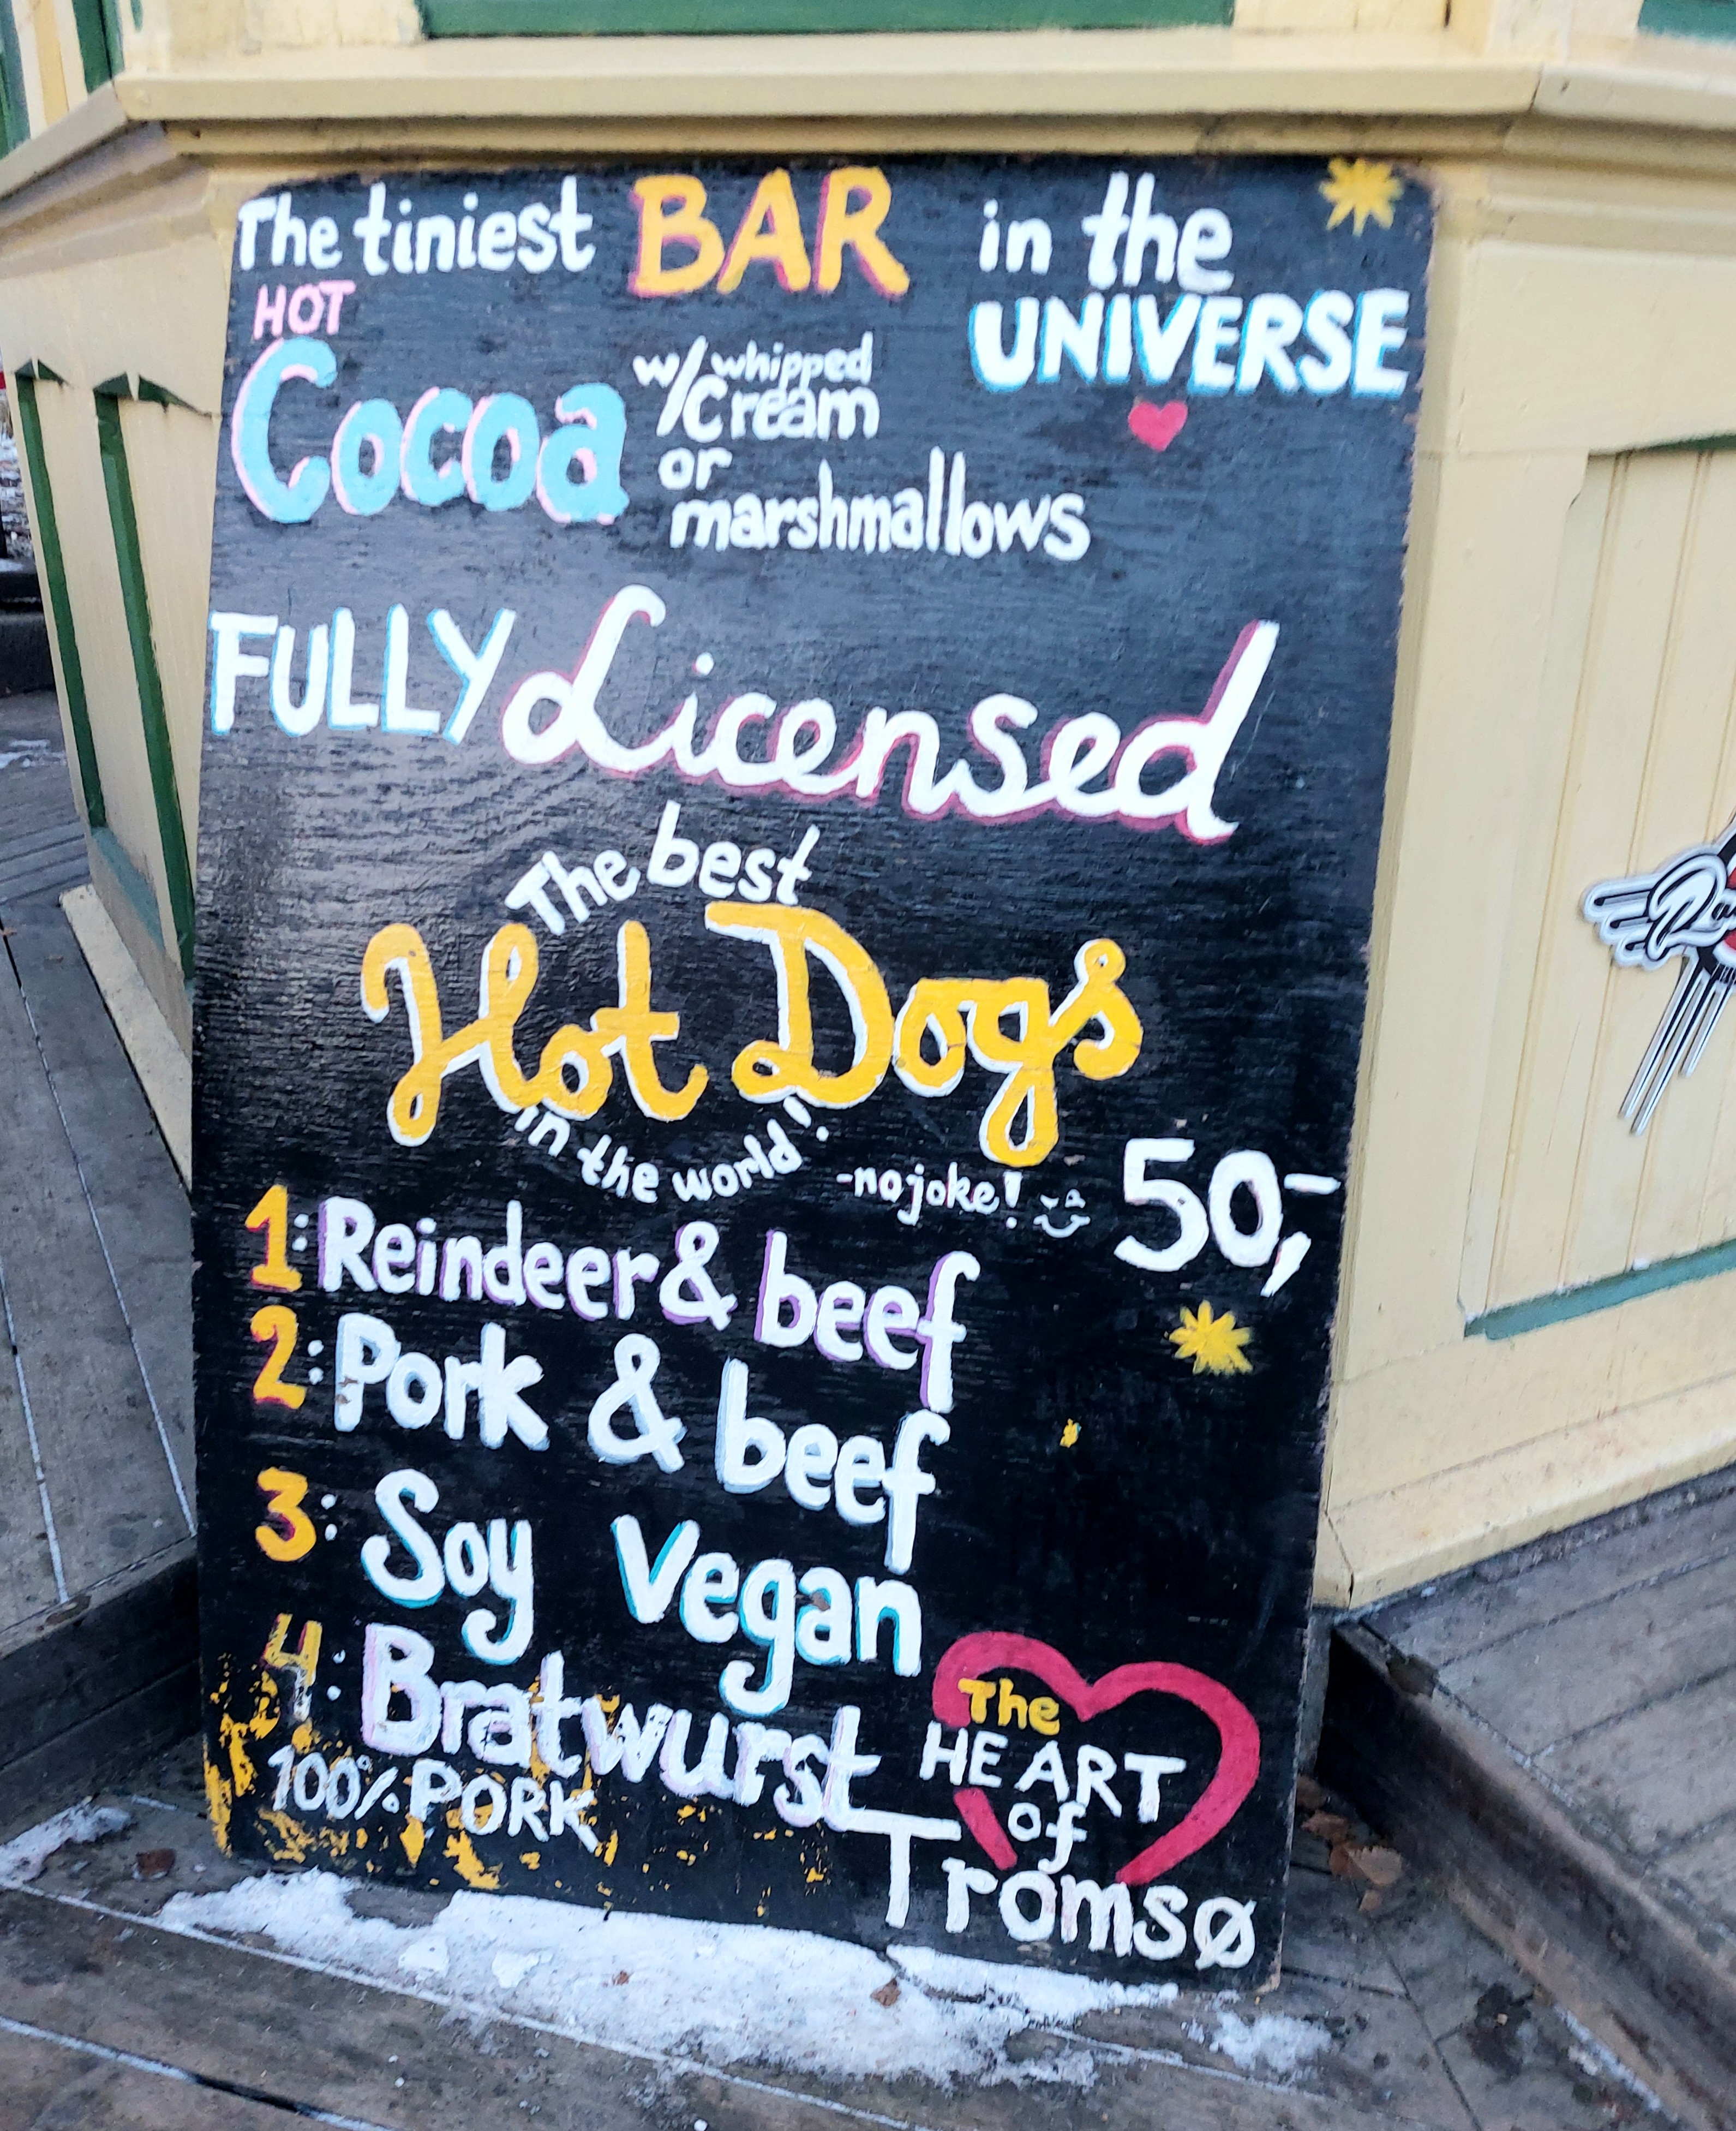 The tiniest BAR in the
UNIVERSE
HOT
Cocoa
w/ whipped
cream
or
marshmallows
FULLY Licensed
The best
Hot Dogs
in the world!
-no joke!
50,-
1: Reindeer & beef
2: Pork & beef
3: Soy Vegan
4: Bratwurst
100% PORK
The
HEART
of
Tromsø